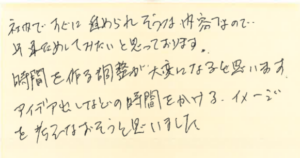 社内ですぐに進められそうな内容なので…
是非ためしてみたいと思っております。
時間を作る調整が大変になると思います
アイデア出しなどの時間をかける、イメージ
を考えなおそうと思いました